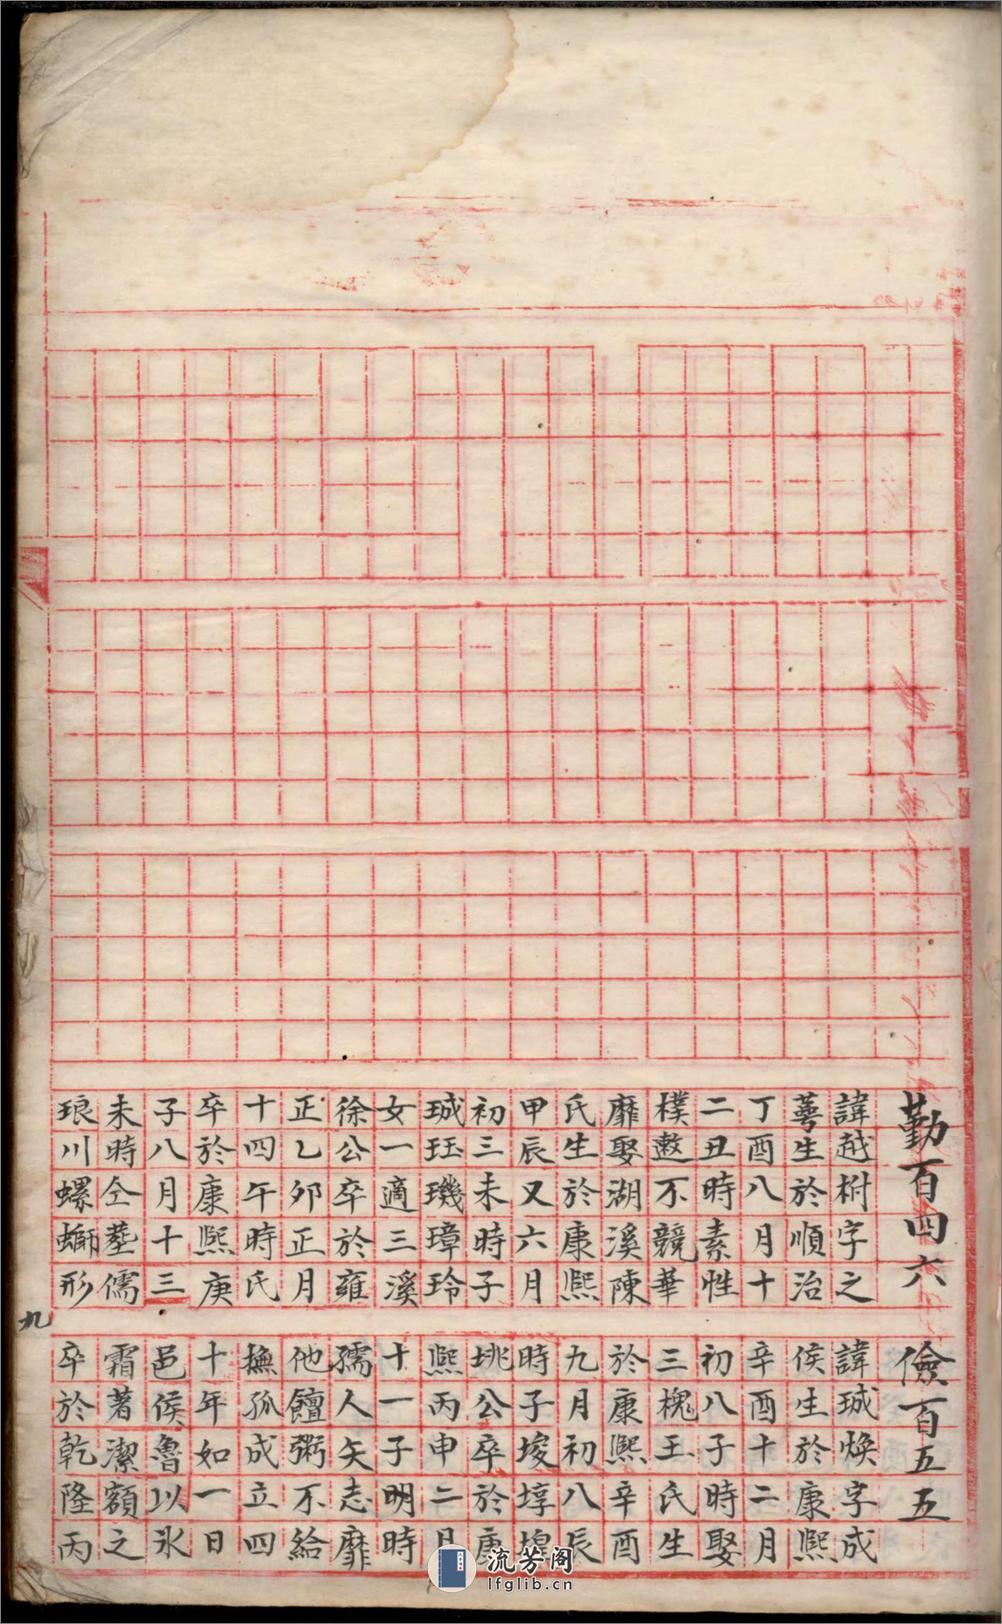 勤百四六
諱越樹字之
蕚生於順治
丁酉八月十
二丑時素性
樸遬不競華
靡娶湖溪陳
氏生於康熙
甲辰又六月
初三未時子
珹珏璣璋玲
女一適三溪
徐公卒於雍
正乙卯正月
十四午時氏
卒於康熙庚
子八月十三
未時仝塟儒
琅川螺螄形
儉百五五
諱珹煥字成
侯生於康熙
辛酉十二月
初八子時娶
三槐王氏生
於康熙辛酉
九月初八辰
時子埈埻埠
垗公卒於康
熙丙申二月
十一子明時
孺人矢志靡
他饘粥不給
撫孤成立四
十年如一日
邑侯魯以氷
霜著潔額之
卒於乾隆丙
九
流芳阁
lfglib.cn